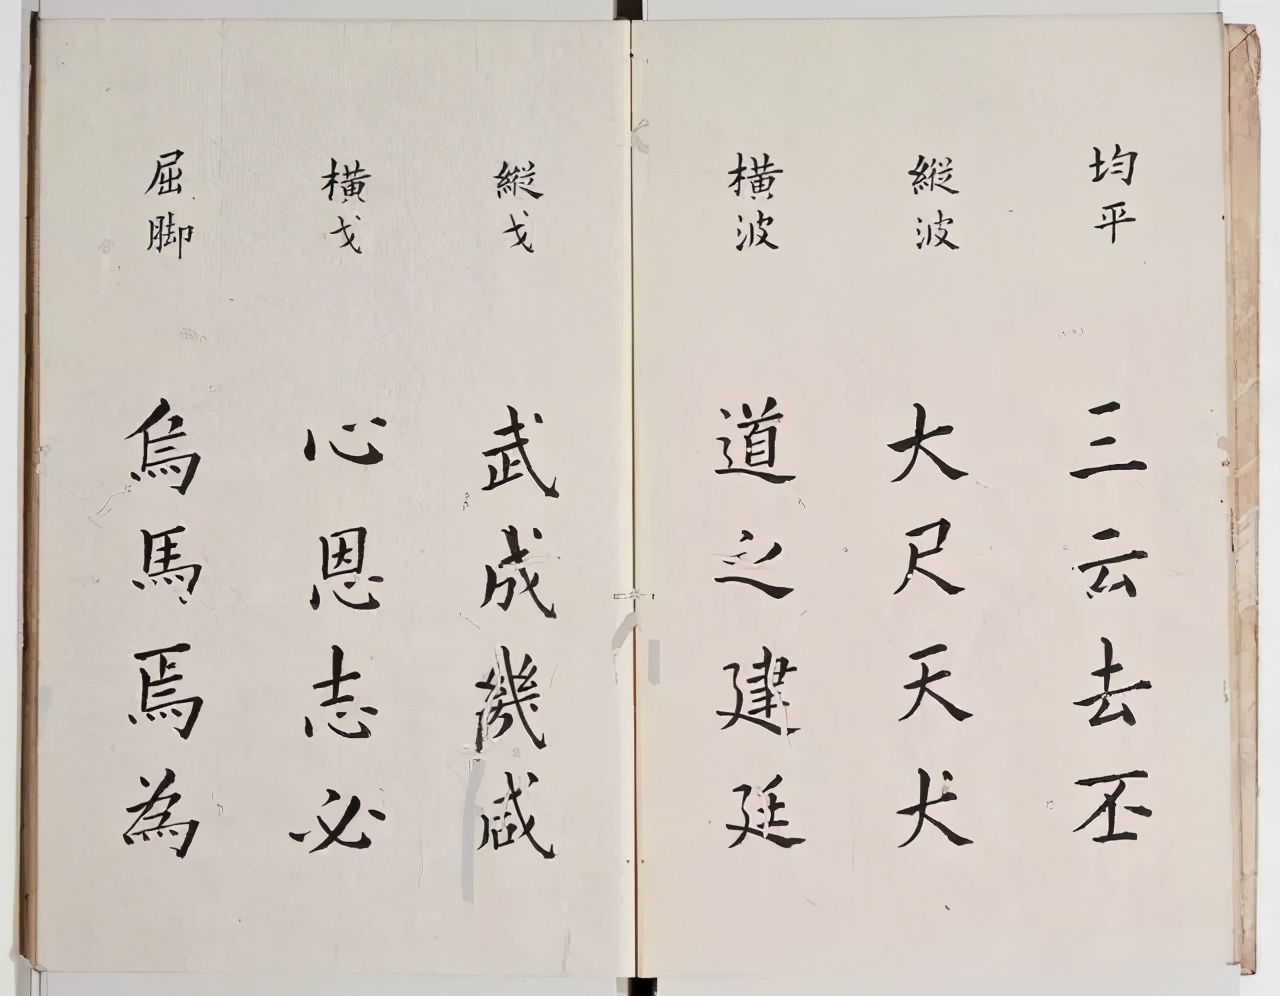 均平
三云去丕
縱波
大尺天犬
橫波
道之建廷
縱戈
武成幾咸
橫戈
心恩志必
屈脚
烏馬焉為